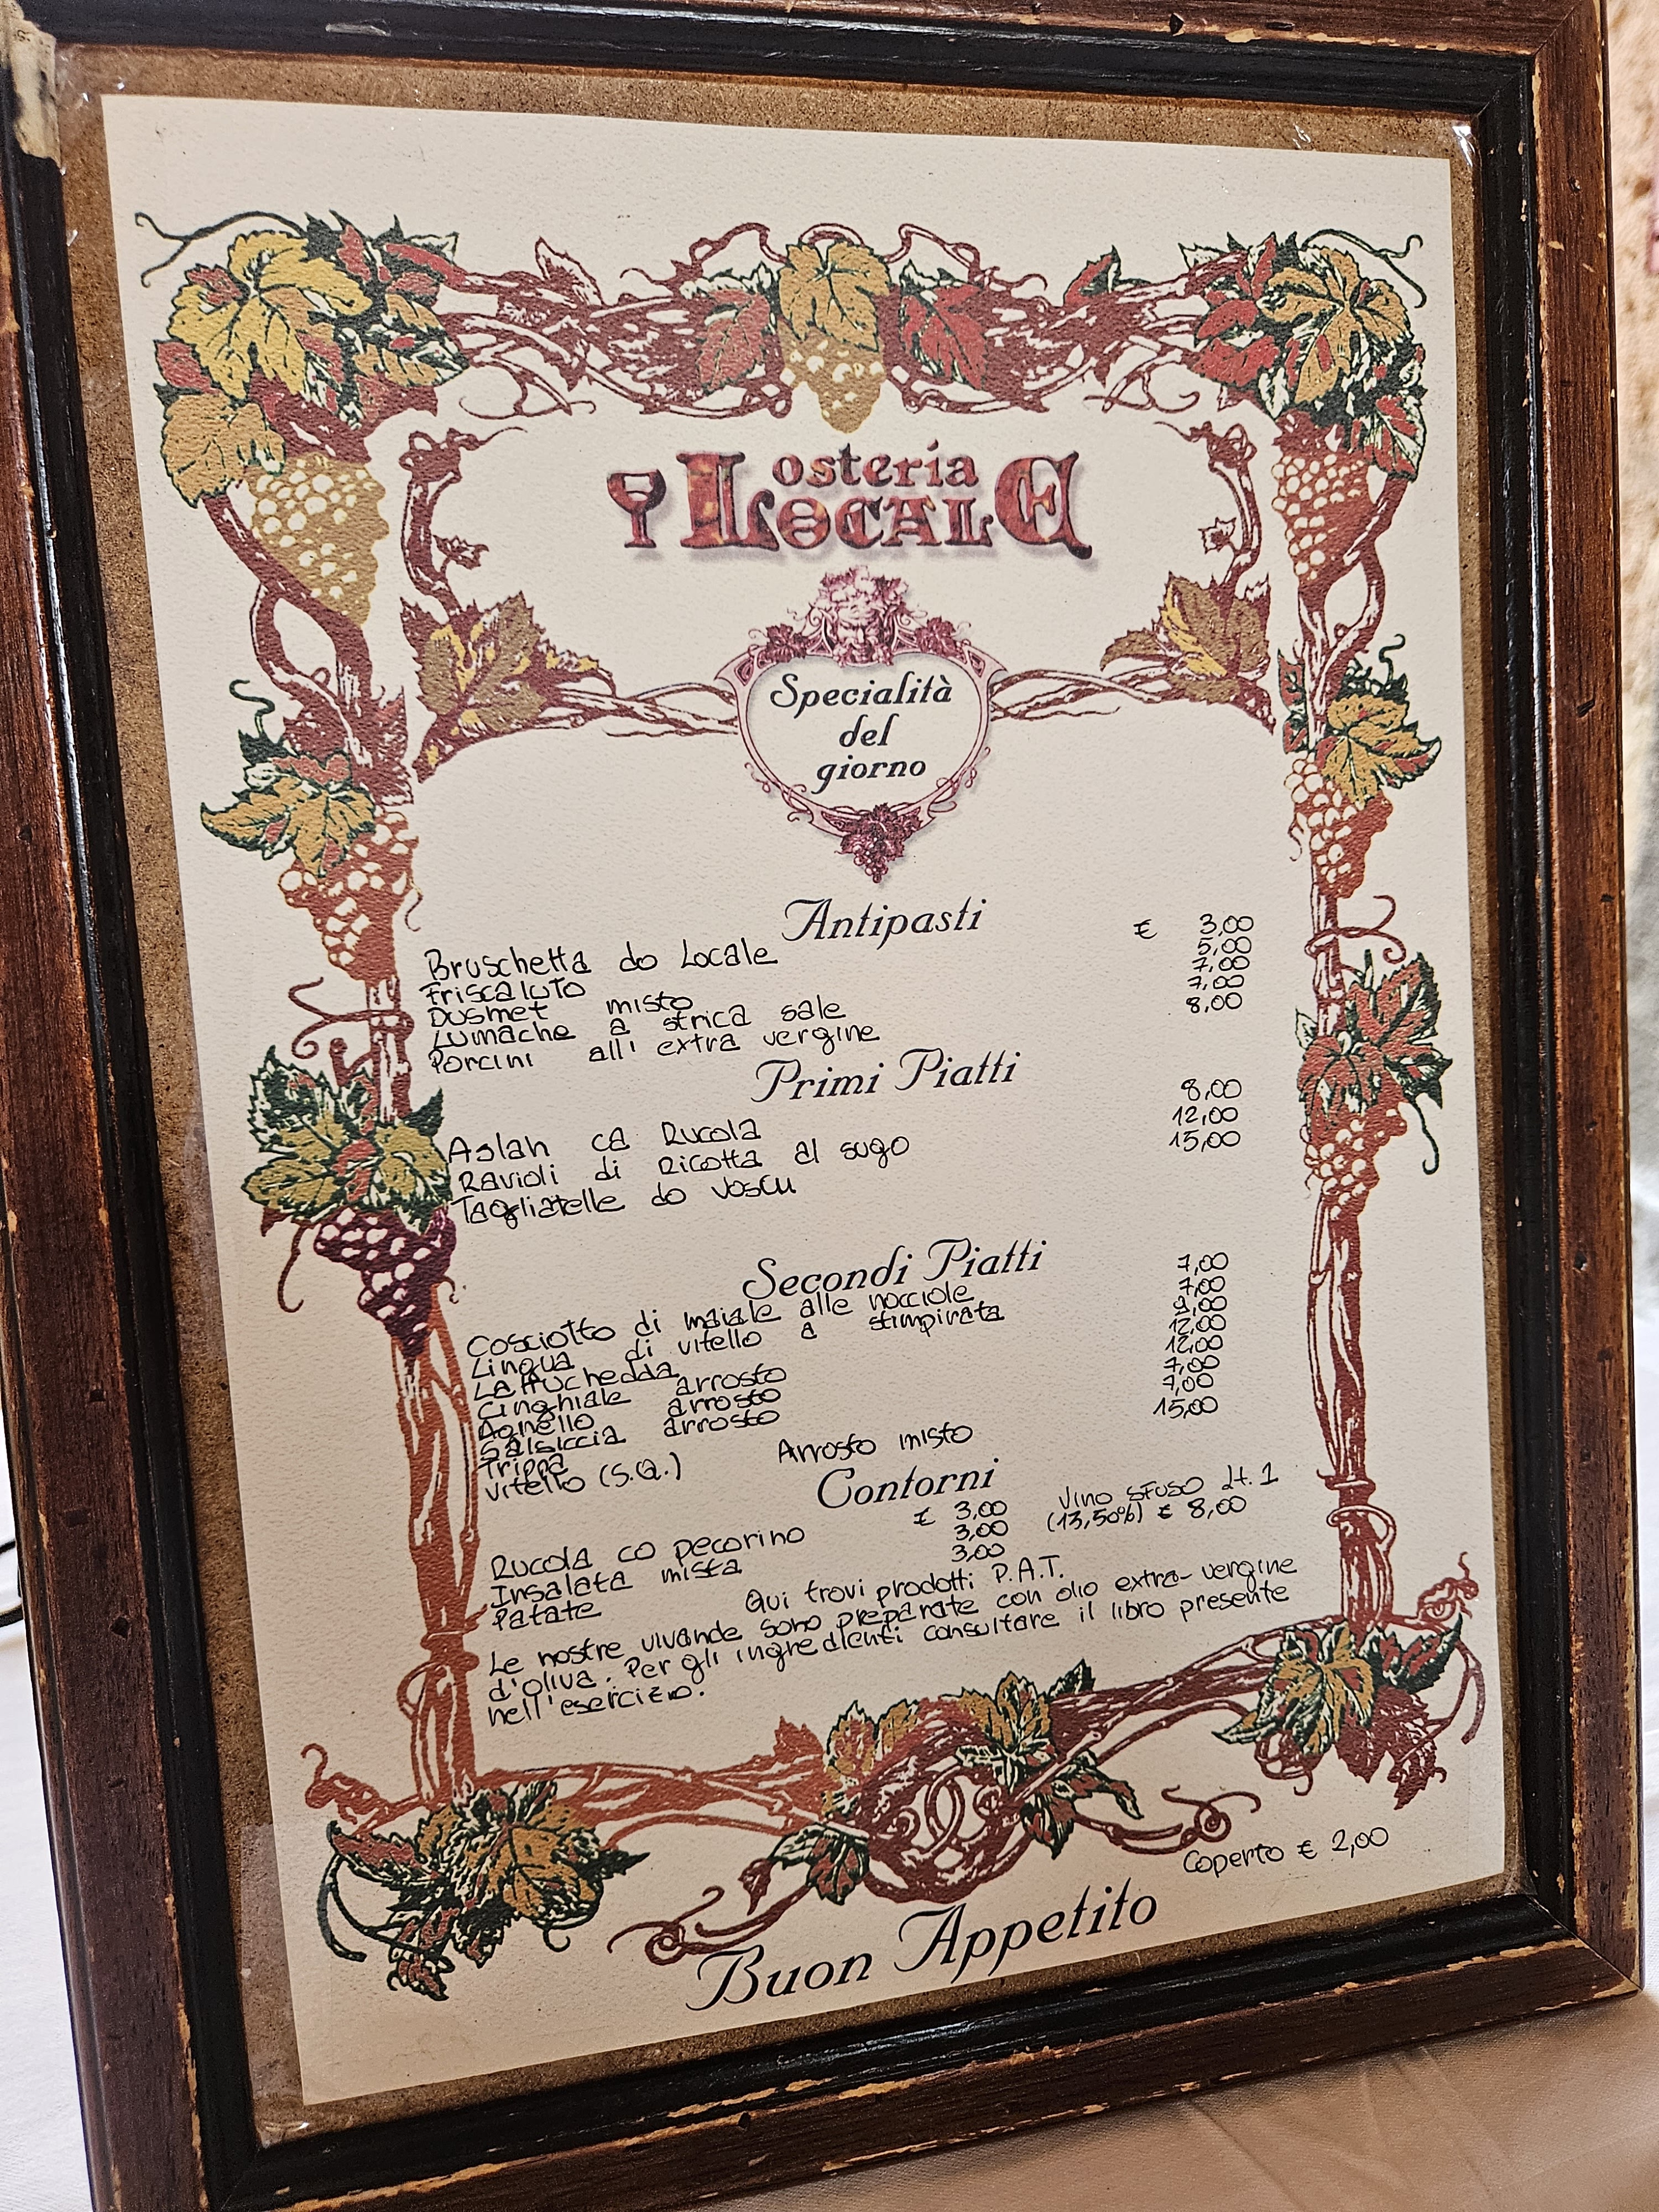 osteria
LOCALE
Specialità
del
giorno
Antipasti
Bruschetta do Locale € 3,00
Friscaluto 5,00
Dusmet misto 7,00
Lumache a strica sale 7,00
Porcini all' extra vergine 8,00
Primi Piatti
Aslan ca Rucola 8,00
Ravioli di Ricotta al sugo 12,00
Tagliatelle do voscu 15,00
Secondi Piatti
Cosciotto di maiale alle nocciole 7,00
Lingua di vitello a stimpirata 7,00
La ffuchedda 9,00
Cinghiale arrosto 12,00
Agnello arrosto 12,00
Salsiccia arrosto 7,00
Trippa 7,00
Vitello (S.Q.) Arrosto misto 15,00
Contorni
Rucola co pecorino € 3,00
Insalata mista 3,00
Patate 3,00
Vino sfuso Lt. 1
(13,50%) € 8,00
Qui trovi prodotti P.A.T.
Le nostre vivande sono preparate con olio extra-vergine
d'oliva. Per gli ingredienti consultare il libro presente
nell'esercizio.
Coperto € 2,00
Buon Appetito